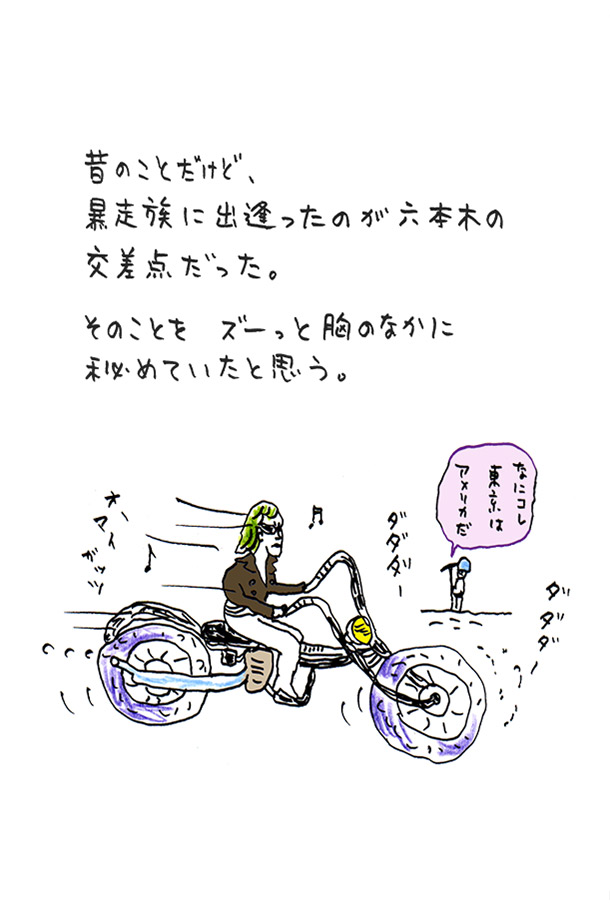 昔のことだけど、
暴走族に出逢ったのが六本木の
交差点だった。
そのことを ズーっと胸のなかに
秘めていたと思う。
なにコレ
東京は
アメリカだ
オー
マイ
ガッツ
ダダダー
ダダダー